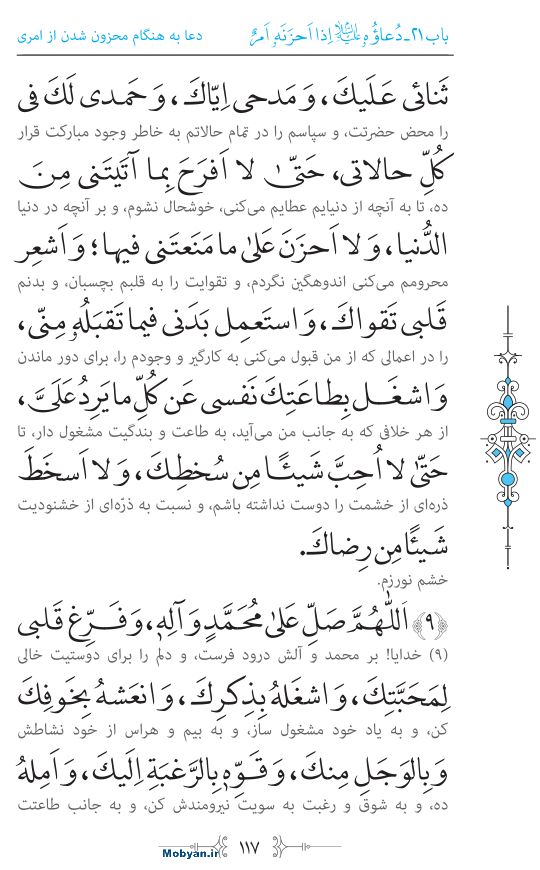 باب ۲۱ـ دُعاؤُهُ عليه السلام اِذا اَحزَنَهُ اَمرٌ دعا به هنگام محزون شدن از امری
ثَنائی عَلَیكَ، وَ مَدحی اِیّاكَ، وَ حَمدی لَكَ فی
را محض حضرتت، و سپاسم را در تمام حالاتم به خاطر وجود مبارکت قرار
کُلِّ حالاتی، حَتّىٰ لا اَفرَحَ بِما آتَیتَنی مِنَ
ده، تا به آنچه از دنیایم عطایم می‌کنی، خوشحال نشوم، و بر آنچه در دنیا
الدُّنیا، وَ لا اَحزَنَ عَلىٰ ما مَنَعتَنی فیها؛ وَ اَشعِر
محرومم می‌کنی اندوهگین نگردم، و تقوایت را به قلبم بچسبان، و بدنم
قَلبی تَقواكَ، وَ استَعمِل بَدَنی فیما تَقبَلُهُ مِنّی،
را در اعمالی که از من قبول می‌کنی به کارگیر و وجودم را، برای دور ماندن
وَ اشغَـل بِطاعَتِكَ نَفسی عَن کُلِّ ما یَرِدُ عَلَیَّ،
از هر خلافی که به جانب من می‌آید، به طاعت و بندگیت مشغول دار، تا
حَتّىٰ لا اُحِبَّ شَیئًـا مِن سُخطِكَ، وَ لا اَسخَطَ
ذره‌ای از خشمت را دوست نداشته باشم، و نسبت به ذرّه‌ای از خشنودیت
شَیئًا مِن رِضاكَ.
خشم نورزم.
﴿۹﴾ اَللّٰهُمَّ صَلِّ عَلىٰ مُحَمَّدٍ وَ آلِهٖ، وَ فَـرِّغ قَلبی
(۹) خدایا! بر محمد و آلش درود فرست، و دلم را برای دوستیت خالی
لِمَحَبَّتِكَ، وَ اشغَلهُ بِذِکرِكَ، وَ انعَشهُ بِخَوفِكَ
کن، و به یاد خود مشغول ساز، و به بیم و هراس از خود نشاطش
وَ بِالوَجَلِ مِنكَ، وَ قَـوِّهٖ بِالرَّغبَةِ اِلَیكَ، وَ اَمِلهُ
ده، و به شوق و رغبت به سویت نیرومندش کن، و به جانب طاعتت
۱۱۷
Mobyan.ir